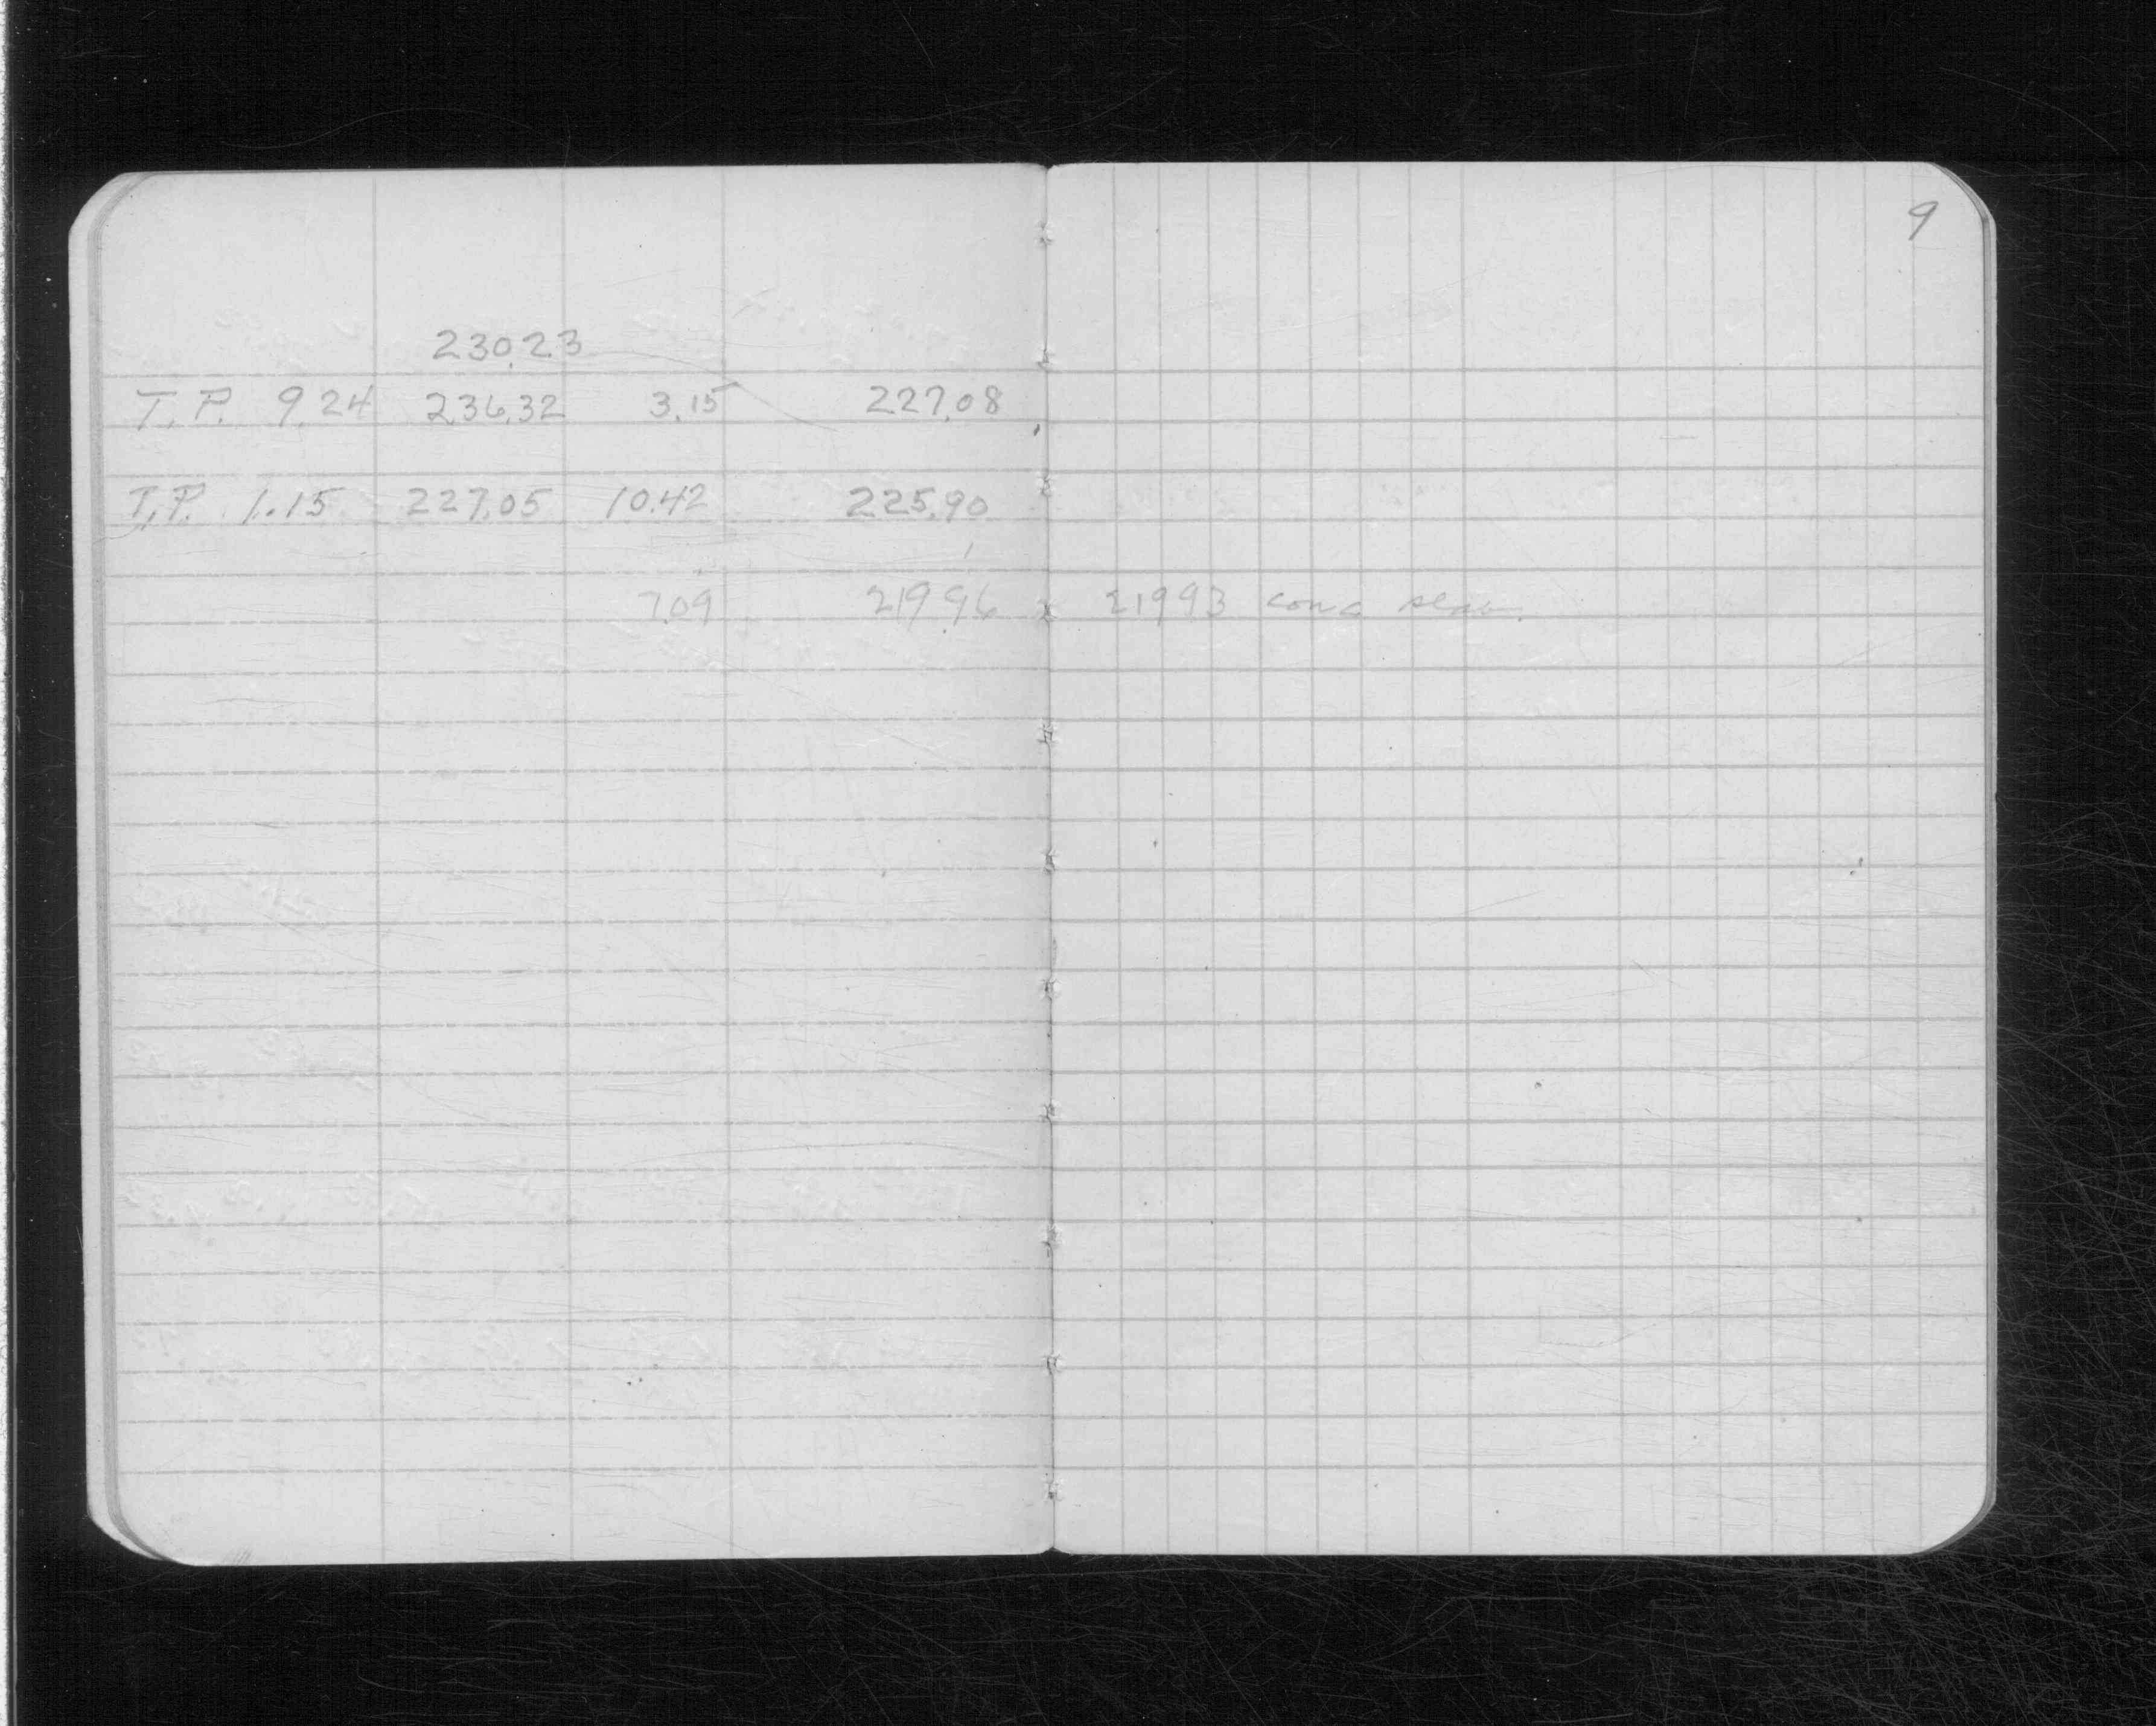 9
230.23
T.P. 9.24 236.32 3.15 227.08
T.P. 1.15 227.05 10.42 225.90
7.09 219.96 219.93 conc slab